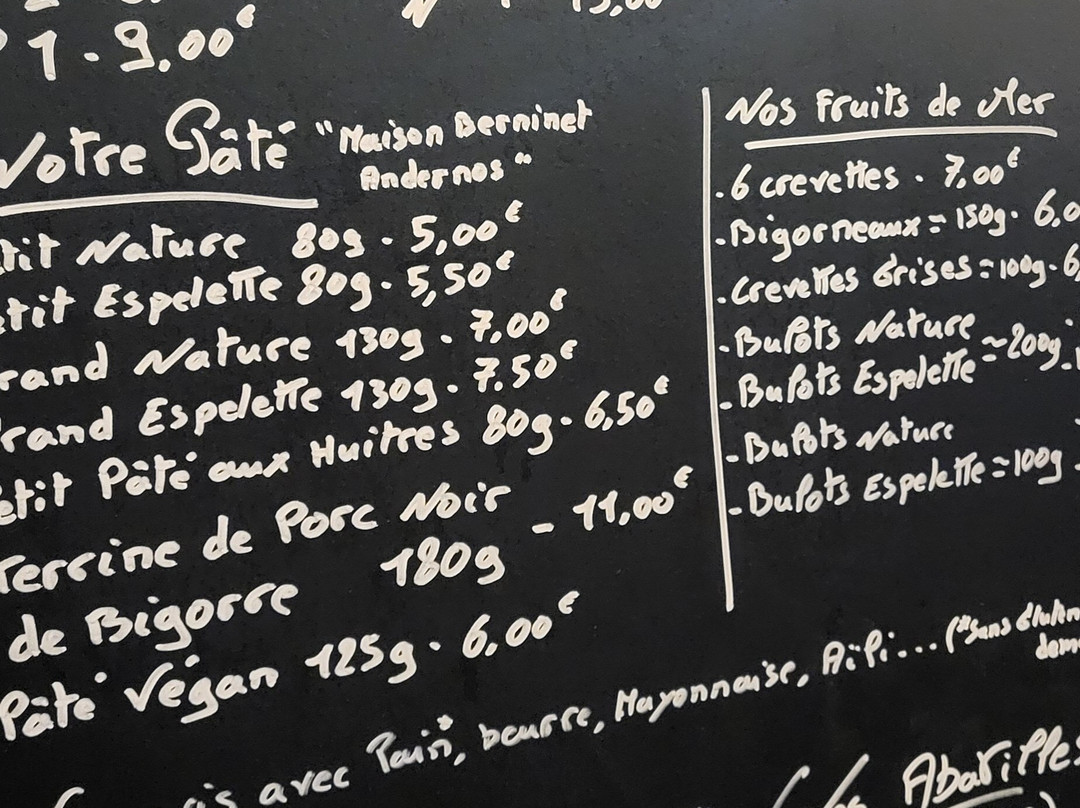 1 . 9,00€
15,00
Votre Pâté "Maison Berninet
Andernos"
tit Nature 80g . 5,00€
etit Espelette 80g . 5,50€
rand Nature 130g . 7,00€
rand Espelette 130g . 7.50€
etit Pâté aux Huitres 80g . 6,50€
Terrine de Porc Noir
de Bigorre 180g - 11,00€
Pâté Végan 125g . 6,00€
Nos Fruits de Mer
. 6 crevettes . 7,00€
. Bigorneaux = 150g . 6,0
. Crevettes Grises = 100g . 6,
. Bulots Nature
. Bulots Espelette = 200g .
- Bulots Nature
- Bulots Espelette = 100g
is avec Pain*, beurre, Mayonnaise, Aïoli... (*Sans Gluten
dem
Abatilles